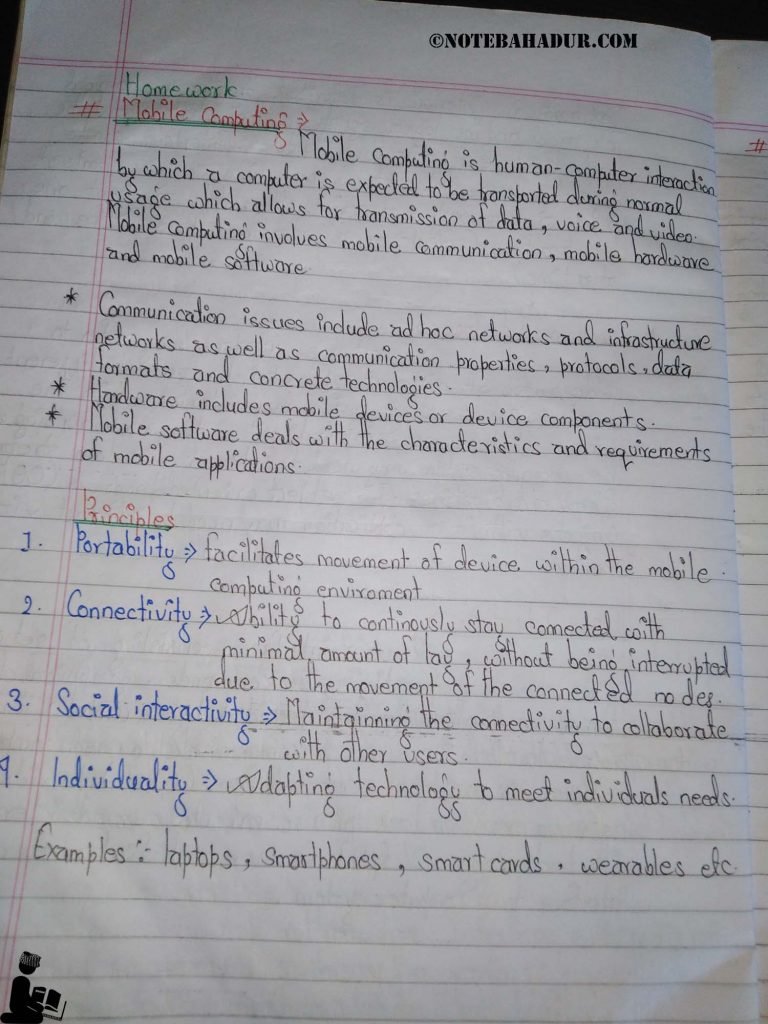 ©NOTEBAHADUR.COM
Homework
# Mobile Computing ⇒
Mobile Computing is human-computer interaction
by which a computer is expected to be transported during normal
usage which allows for transmission of data, voice and video.
Mobile computing involves mobile communication, mobile hardware
and mobile software
* Communication issues include ad hoc networks and infrastructure
networks as well as communication properties, protocols, data
formats and concrete technologies.
* Hardware includes mobile devices or device components.
* Mobile software deals with the characteristics and requirements
of mobile applications.
Principles
1. Portability ⇒ facilitates movement of device within the mobile
computing enviroment
2. Connectivity ⇒ Ability to continously stay connected with
minimal amount of lag, without being interrupted
due to the movement of the connected nodes.
3. Social interactivity ⇒ Maintainning the connectivity to collaborate
with other users.
4. Individuality ⇒ Adapting technology to meet individuals needs.
Examples :- laptops, smartphones, smart cards, wearables etc.
#